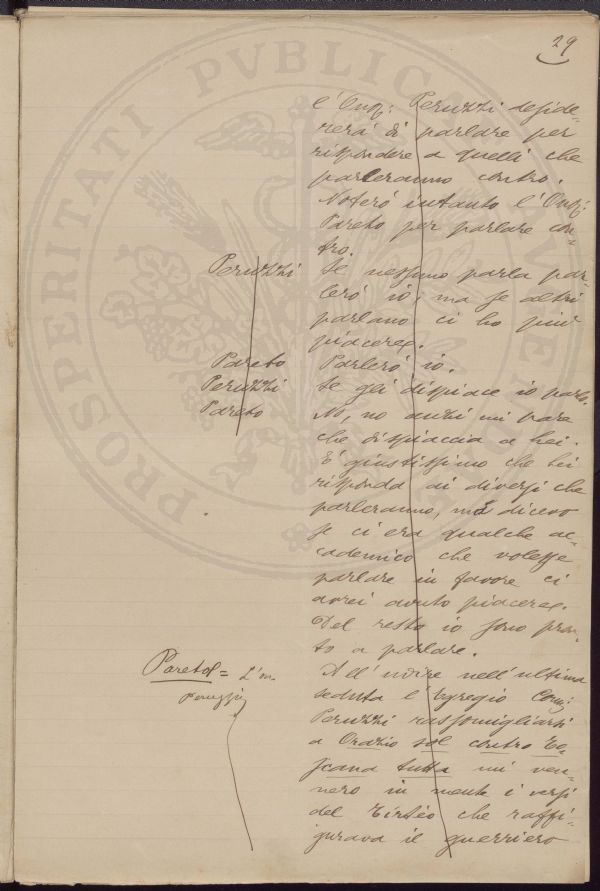 29
l'Onor: Peruzzi deside-
rerà di parlare per
rispondere a quelli che
parleranno contro.
Noterò intanto l'Onor:
Pareto per parlare con-
tro.
Peruzzi Se nessuno parla par-
lerò io, ma se altri
parlano ci ho più
piacere.
Pareto Parlerò io.
Peruzzi Se gli dispiace io parlo.
Pareto No, no anzi mi pare
che dispiaccia a lei.
È giustissimo che lei
risponda ai diversi che
parleranno, ma dicevo
se ci era qualche ac-
cademico che volesse
parlare in favore ci
avrei avuto piacere.
Del resto io sono pron-
to a parlare.
Pareto = L'on. All'udire nell'ultima
Peruzzi seduta l'Egregio Com:
Peruzzi rassomigliarsi
a Orazio sol contro To-
scana tutta mi ven-
nero in mente i versi
del Tirteo che raffi-
gurava il guerriero
PROSPERITATI PVBLICAE